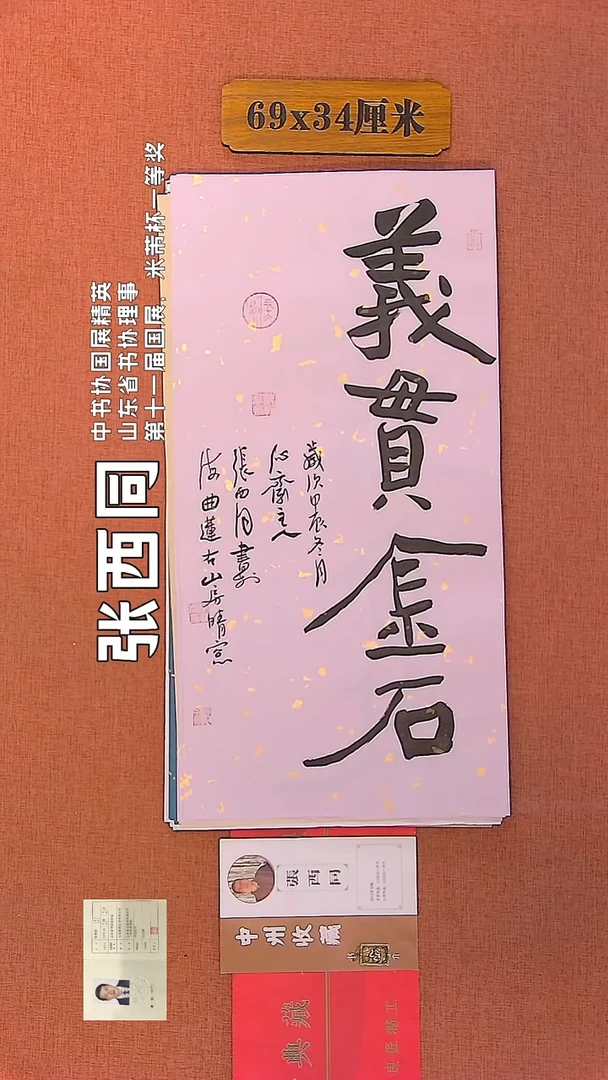 69x34厘米
義貫金石
歲次甲辰冬月
沁齋主人
張西同書於
曲蓮古山房晴窓
张西同
中书协国展精英
山东省书协理事
第十一届国展，米芾杯一等奖
張西同
中州收藏
典藏
良匠精工